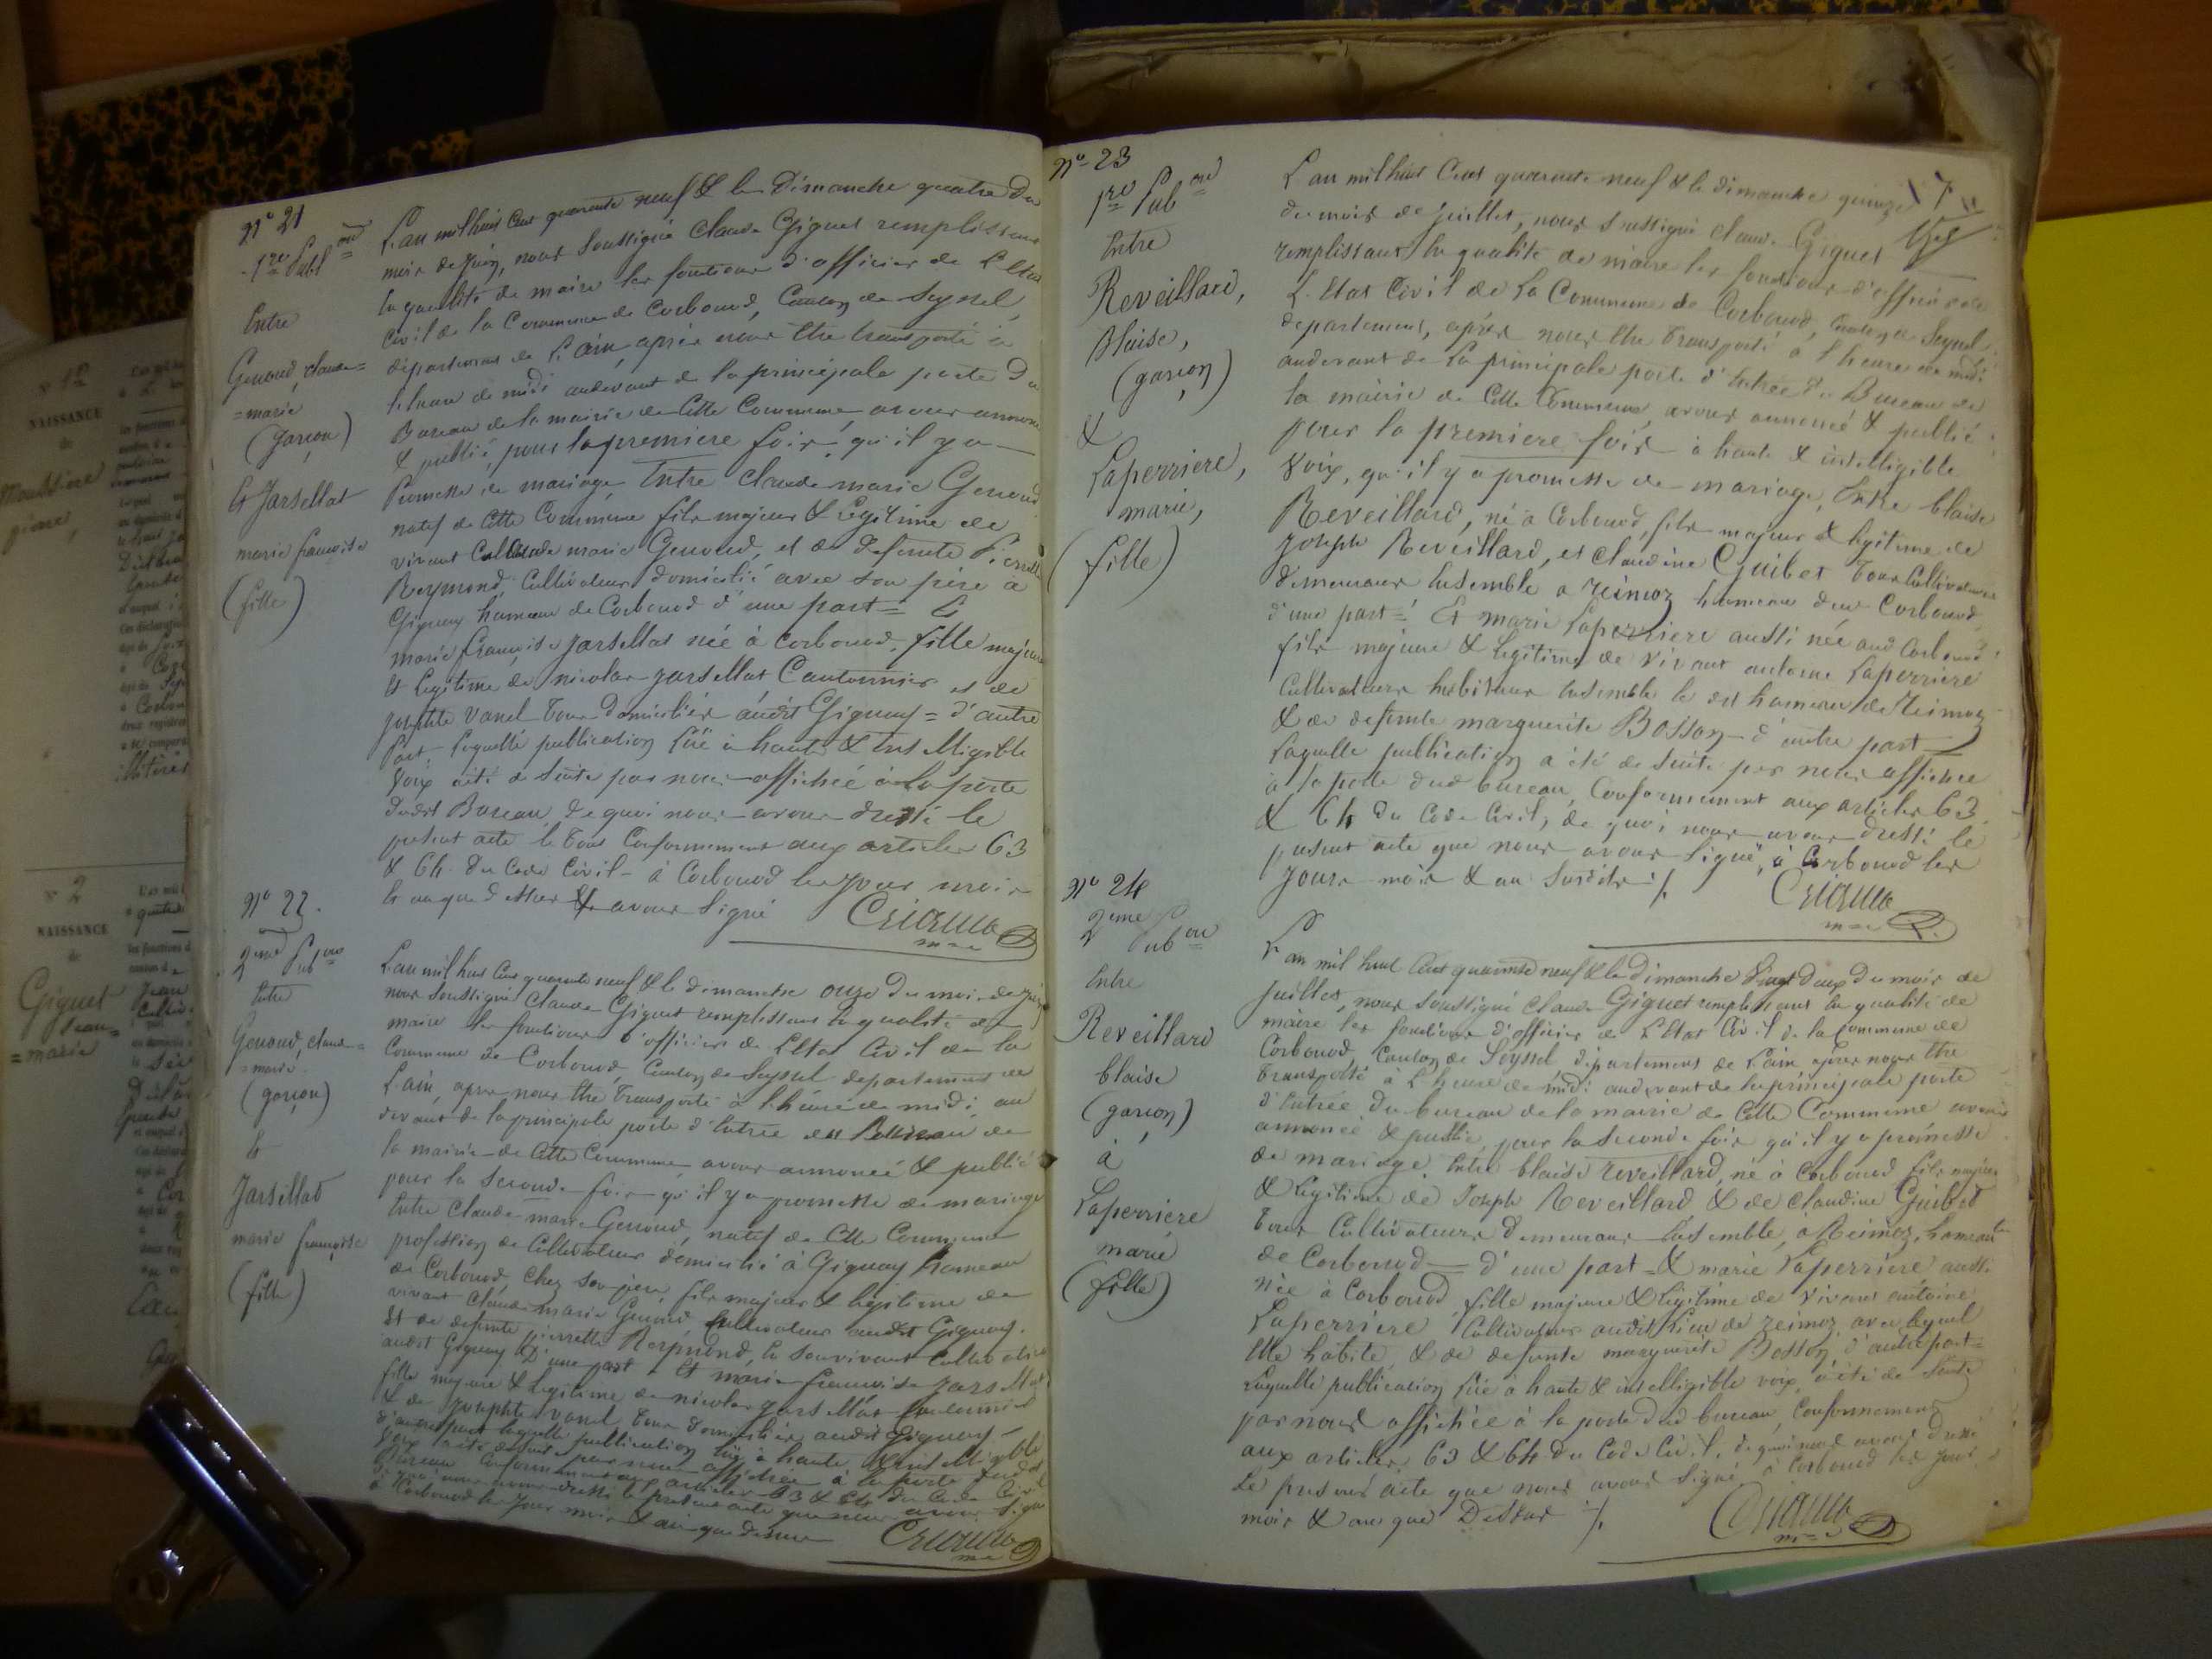 n° 21
1re Publ on
Entre
Genoud, claude=
=marie
(garçon)
Et Jarsellat
marie françoise
(fille)
L'an mil huit Cent quarante neuf & le Dimanche quatre du
mois de juin, nous soussigné Claude Giguet remplissant
la qualité de maire les fonctions d'officier de L'Etat
Civil de la Commune de Corbonod, Canton de Seyssel,
département de L'ain, après nous être transporté à
l'heure de midi audevant de la principale porte du
Bureau de la mairie de Cette Commune, avons annoncé
& publié, pour la premiere fois, qu'il y a
Promesse de mariage Entre Claude marie Genoud,
natif de Cette Commune fils majeur & Légitime de
vivant Claude marie Genoud, et de defunte Pierrette
Reymond, Cultivateur domicilié avec son père à
Gignay hameau de Corbonod d'une part = Et
marie françoise Jarsellat née à Corbonod, fille majeure
Et legitime de nicolas Jarsellat Cantonnier et de
josephte Vanel tous domiciliés audit Gignay = d'autre
Part, Laquelle publication lüe à haute & Intelligible
Voix a été de suite par nous affichée à la porte
dudit Bureau, de quoi nous avons dressé le
présent acte le tout Conformement aux articles 63
& 64 du Code Civil - à Corbonod les jour mois
& an que dessus & avons signé
n° 22.
2eme Pub on
Entre
Genoud, claude=
=marie
(garçon)
Et
Jarsellat
marie françoise
(fille)
L'an mil huit Cent quarante neuf & le dimanche onze du mois de juin
nous soussigné Claude Giguet remplissant la qualité de
maire les fonctions d'officier de L'Etat Civil de la
Commune de Corbonod, Canton de Seyssel département de
L'ain, après nous être transporté à l'heure de midi au
devant de la principale porte d'Entrée du Bureau de
la mairie de Cette Commune avons annoncé & publié
pour la seconde fois qu'il y a promesse de mariage
Entre Claude marie Genoud, natif de Cette Commune
profession de Cultivateur domicilié à Gignay hameau
de Corbonod, Chez son père, fils majeur & légitime de
vivant Claude marie Genoud, Cultivateur audit Gignay.
Et de defunte Pierrette Reymond, le survivant Cultivateur
audit Gignay d'une part = Et marie françoise Jarsellat
fille majeure & legitime de nicolas Jarsellat Cantonnier
& de Josephte Vanel tous domiciliés audit Gignay -
d'autre part laquelle publication lüe à haute & Intelligible
Voix a été de suite par nous affichée à la porte dudit
Bureau Conformement aux articles 63 & 64 du Code Civil
de quoi nous avons dressé le présent acte que nous avons signé
à Corbonod les jour mois & an que dessus
n° 23
1re Pub on
Entre
Reveillard,
Blaise,
(garçon)
&
Laperriere,
marie,
(fille)
17
L'an mil huit Cent quarante neuf & le dimanche quinze
du mois de juillet, nous soussigné Claude Giguet
remplissant la qualité de maire les fonctions d'officier de
L'Etat Civil de la Commune de Corbonod, Canton de Seyssel
departement, après nous être transporté à l'heure de midi
audevant de la principale porte d'Entrée du Bureau de
la mairie de Cette Commune, avons annoncé & publié
pour la premiere fois à haute & intelligible
Voix, qu'il y a promesse de mariage, Entre blaise
Reveillard, né à Corbonod, fils majeur & legitime de
Joseph Reveillard, et Claudine Guibet tous Cultivateurs
demeurant Ensemble à Reimoz hameau dud Corbonod
d'une part = Et marie Laperriere aussi née aud Corbonod
fille majeure & Legitime de vivant antoine Laperriere
Cultivateurs habitant Ensemble le dit hameau de Reimoz
& de defunte marguerite Bosson - d'autre part
Laquelle publication a été de suite par nous affichée
à la porte dud bureau, Conformement aux articles 63
& 64 du Code Civil, de quoi nous avons dressé le
présent acte que nous avons signé, à Corbonod les
jour mois & an susdits ./.
n° 24
2eme Pub on
Entre
Reveillard
blaise
(garçon)
à
Laperriere
marie
(fille)
L'an mil huit Cent quarante neuf & le dimanche Vingt deux du mois de
juillet, nous soussigné Claude Giguet remplissant la qualité de
maire les fonctions d'officier de L'Etat Civil de la Commune de
Corbonod, Canton de Seyssel département de L'ain, après nous être
transporté à L'heure de midi audevant de la principale porte
d'Entrée du bureau de la mairie de Cette Commune avons
annoncé & publié, pour la seconde fois qu'il y a promesse
de mariage Entre blaise reveillard, né à Corbonod, fils majeur
& Légitime de Joseph Reveillard & de claudine Guibet
tous Cultivateurs demeurant Ensemble, à Reimoz, hameau
de Corbonod = d'une part = & marie Laperriere aussi
née à Corbonod, fille majeure & légitime de vivant antoine
Laperriere Cultivateur audit Lieu de reimoz avec lequel
Elle habite, & de defunte marguerite Bosson, d'autre part =
Laquelle publication lüe à haute & intelligible voix, a été de suite
par nous affichée à la porte dud bureau, Conformement
aux articles 63 & 64 du Code Civil, de quoi nous avons dressé
Le présent acte que nous avons signé à Corbonod les jour,
mois & an que Dessus ./.
NAISSANCE
N° 2
NAISSANCE
de
Giguet
Jean=
=marie